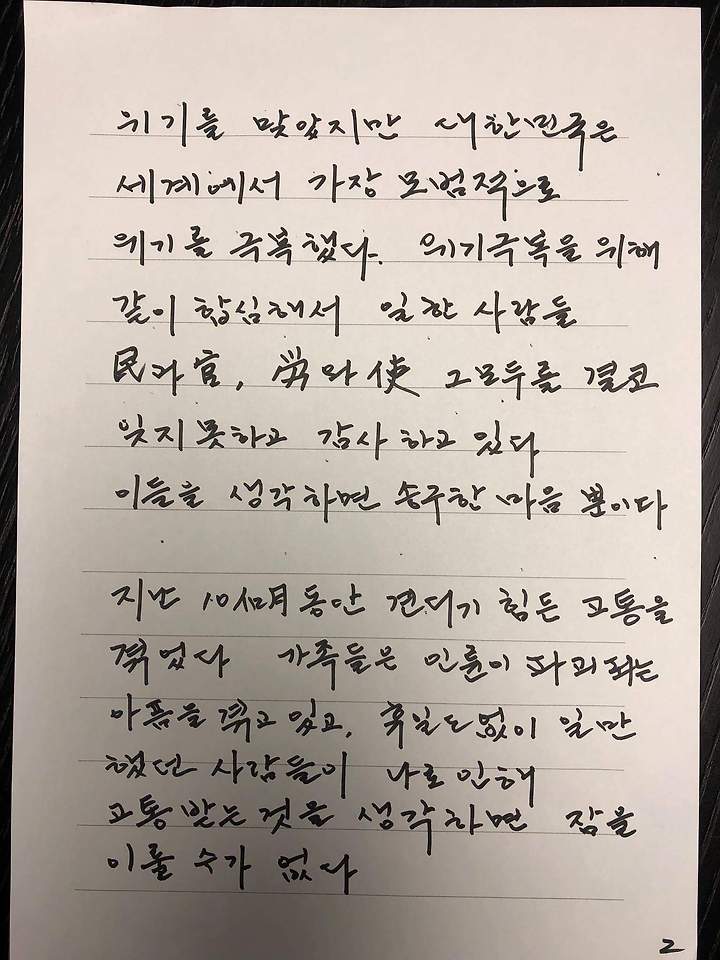 위기를 맞았지만 대한민국은
세계에서 가장 모범적으로
위기를 극복했다. 위기극복을 위해
같이 합심해서 일한 사람들
民과 官, 労와 使 그모두를 결코
잊지못하고 감사하고 있다
이들을 생각하면 송구한 마음 뿐이다
지난 10個月동안 견디기 힘든 고통을
겪었다 가족들은 인륜이 파괴되는
아픔을 겪고 있고, 휴일도 없이 일만
했던 사람들이 나로인해
고통받는것을 생각하면 잠을
이룰 수가 없다
2